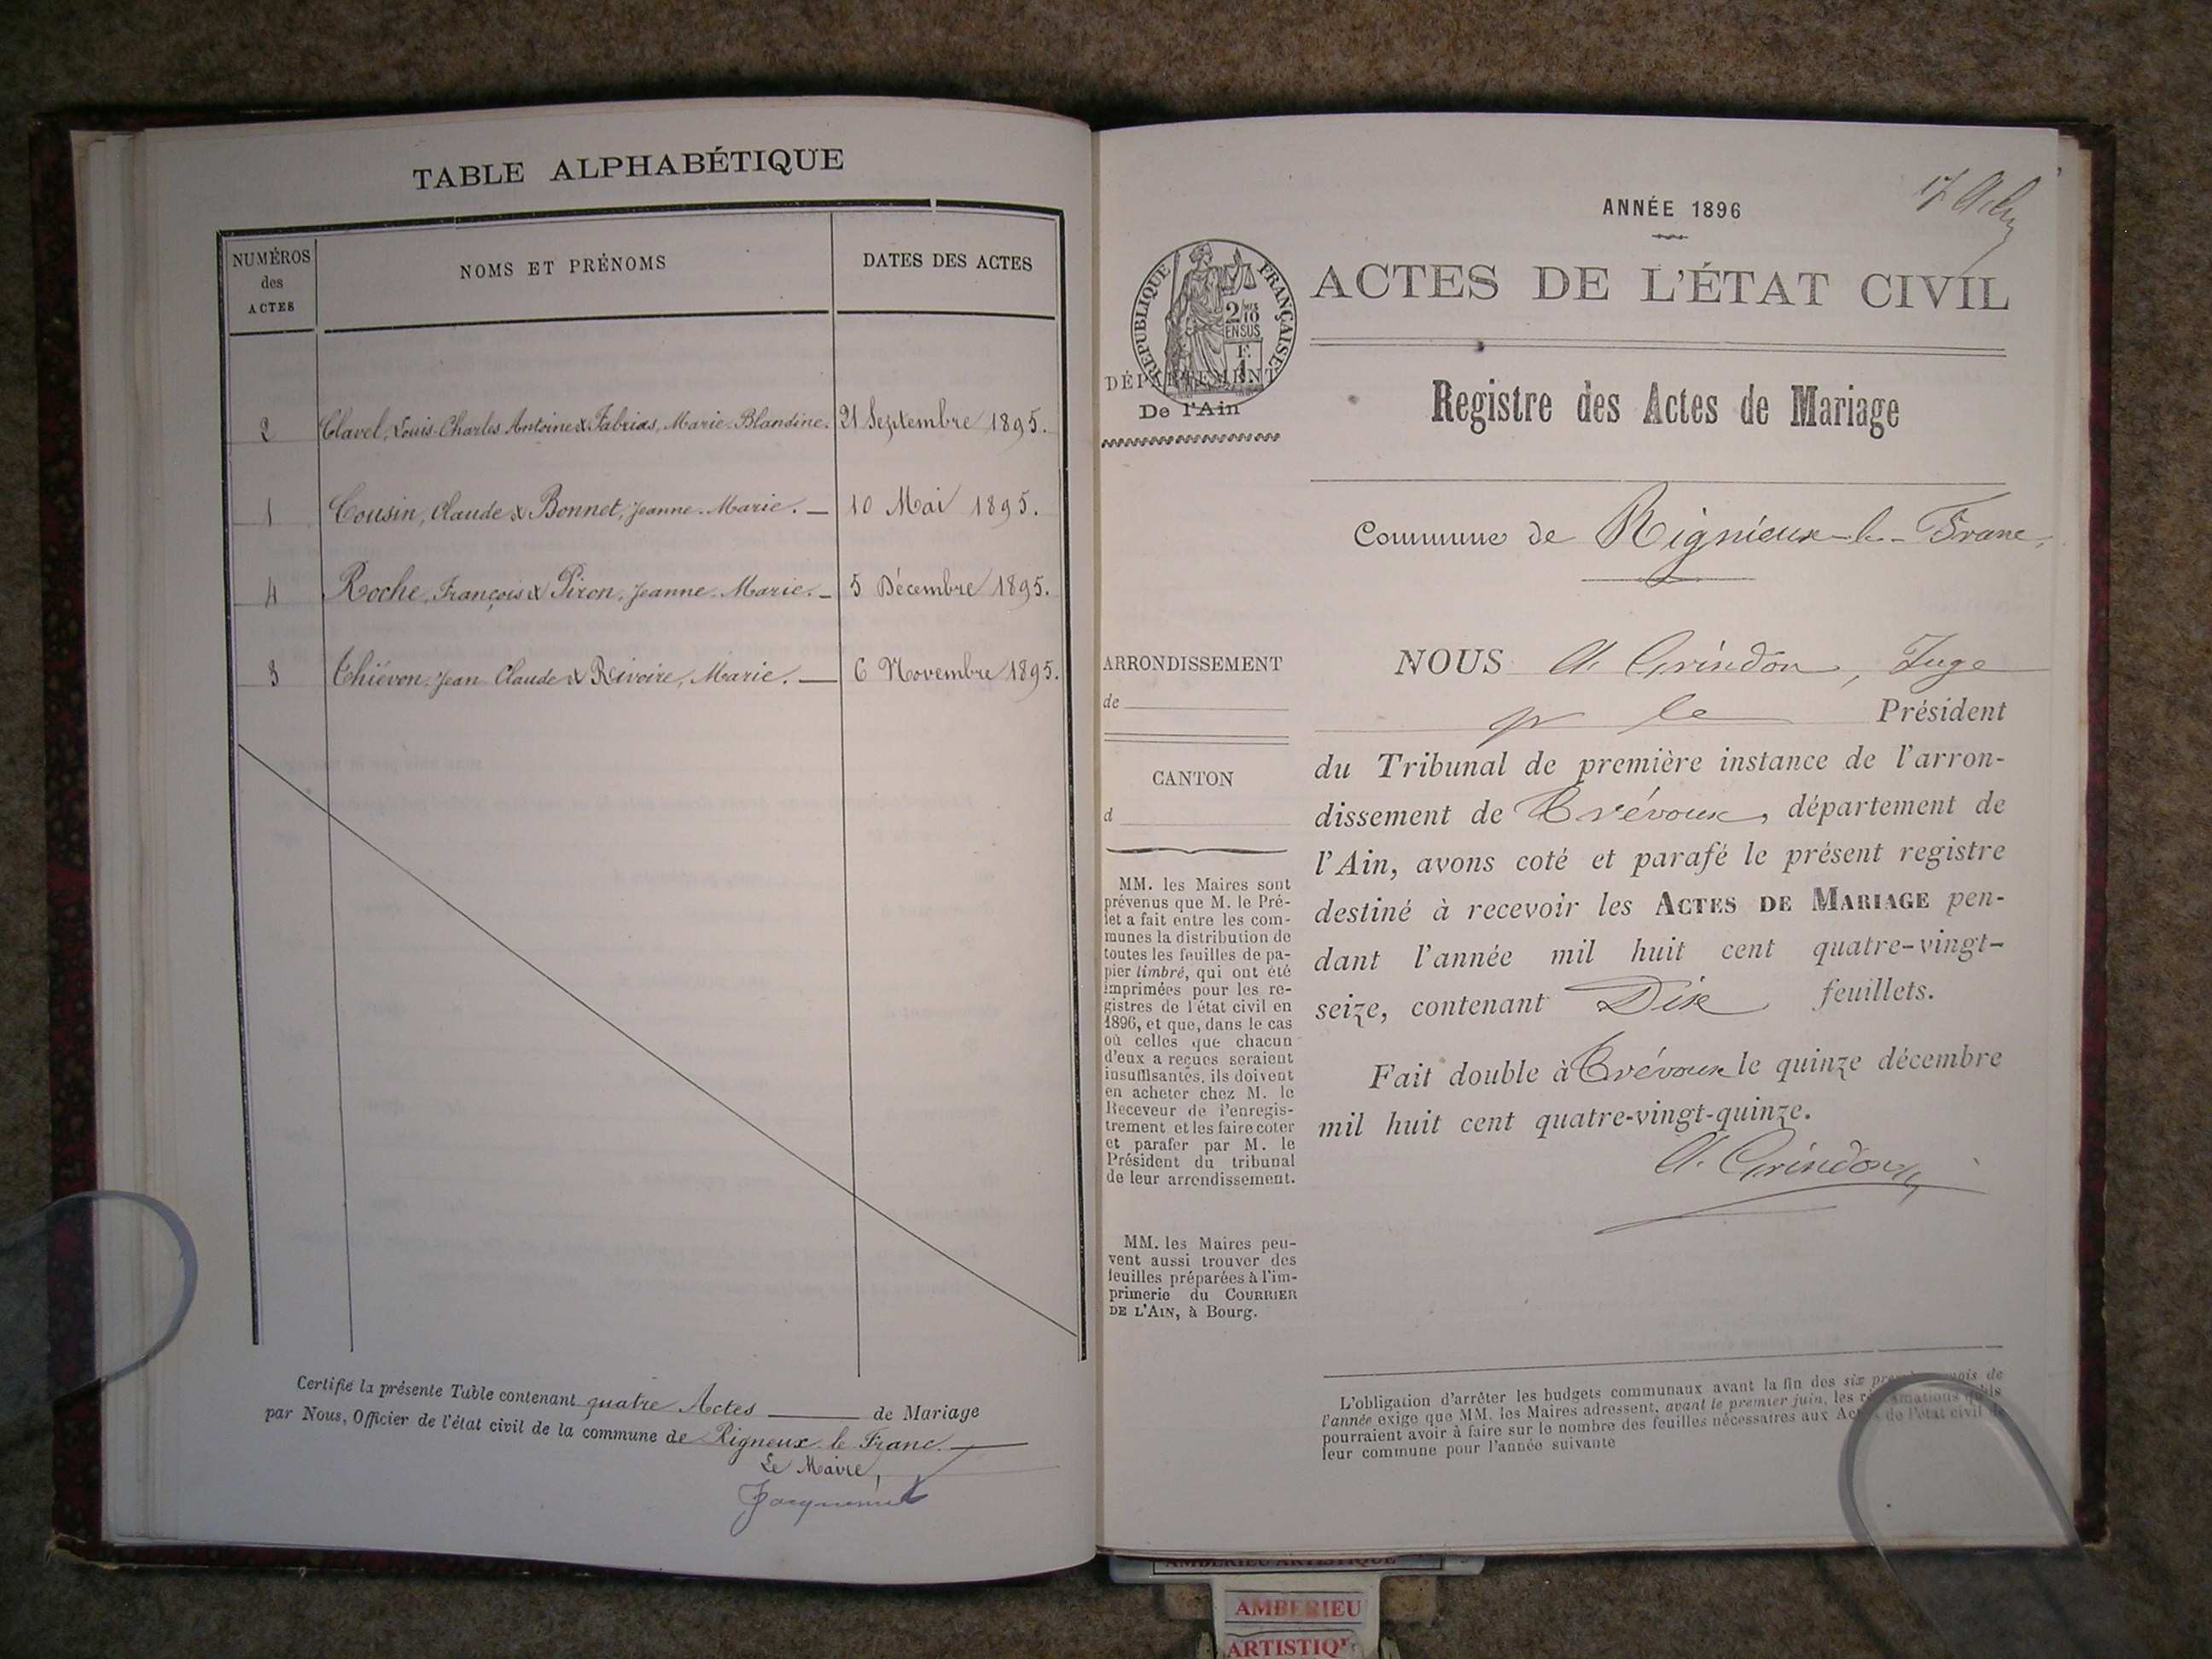 TABLE ALPHABÉTIQUE
NUMÉROS
des
ACTES
NOMS ET PRÉNOMS
DATES DES ACTES
2 Clavel, Louis Charles Antoine & Fabrias, Marie Blandine. 21 Septembre 1895.
1 Cousin, Claude & Bonnet, Jeanne-Marie. — 10 Mai 1895.
4 Roche, François & Piron, Jeanne-Marie. — 5 Décembre 1895.
3 Thiévon, Jean Claude & Rivoire, Marie. — 6 Novembre 1895.
Certifié la présente Table contenant quatre Actes de Mariage
par Nous, Officier de l'état civil de la commune de Rigneux-le Franc.
Le Maire,
ANNÉE 1896
RÉPUBLIQUE FRANÇAISE
2/10
EN SUS
F.
1
DÉPARTEMENT
De l'Ain
ACTES DE L'ÉTAT CIVIL
Registre des Actes de Mariage
Commune de Rignieux-le-Franc,
ARRONDISSEMENT
de
CANTON
d
MM. les Maires sont
prévenus que M. le Pré-
fet a fait entre les com-
munes la distribution de
toutes les feuilles de pa-
pier timbré, qui ont été
imprimées pour les re-
gistres de l'état civil en
1896, et que, dans le cas
où celles que chacun
d'eux a reçues seraient
insuffisantes, ils doivent
en acheter chez M. le
Receveur de l'enregis-
trement et les faire coter
et parafer par M. le
Président du tribunal
de leur arrondissement.
MM. les Maires peu-
vent aussi trouver des
feuilles préparées à l'im-
primerie du COURRIER
DE L'AIN, à Bourg.
NOUS A. Grindon, Juge
pr le Président
du Tribunal de première instance de l'arron-
dissement de Trévoux, département de
l'Ain, avons coté et parafé le présent registre
destiné à recevoir les ACTES DE MARIAGE pen-
dant l'année mil huit cent quatre-vingt-
seize, contenant Dix feuillets.
Fait double à Trévoux le quinze décembre
mil huit cent quatre-vingt-quinze.
A. Grindon
L'obligation d'arrêter les budgets communaux avant la fin des six premiers mois de
l'année exige que MM. les Maires adressent, avant le premier juin, les réclamations qu'ils
pourraient avoir à faire sur le nombre des feuilles nécessaires aux Actes de l'état civil de
leur commune pour l'année suivante
AMBERIEU ARTISTIQUE
AMBERIEU
ARTISTIQU